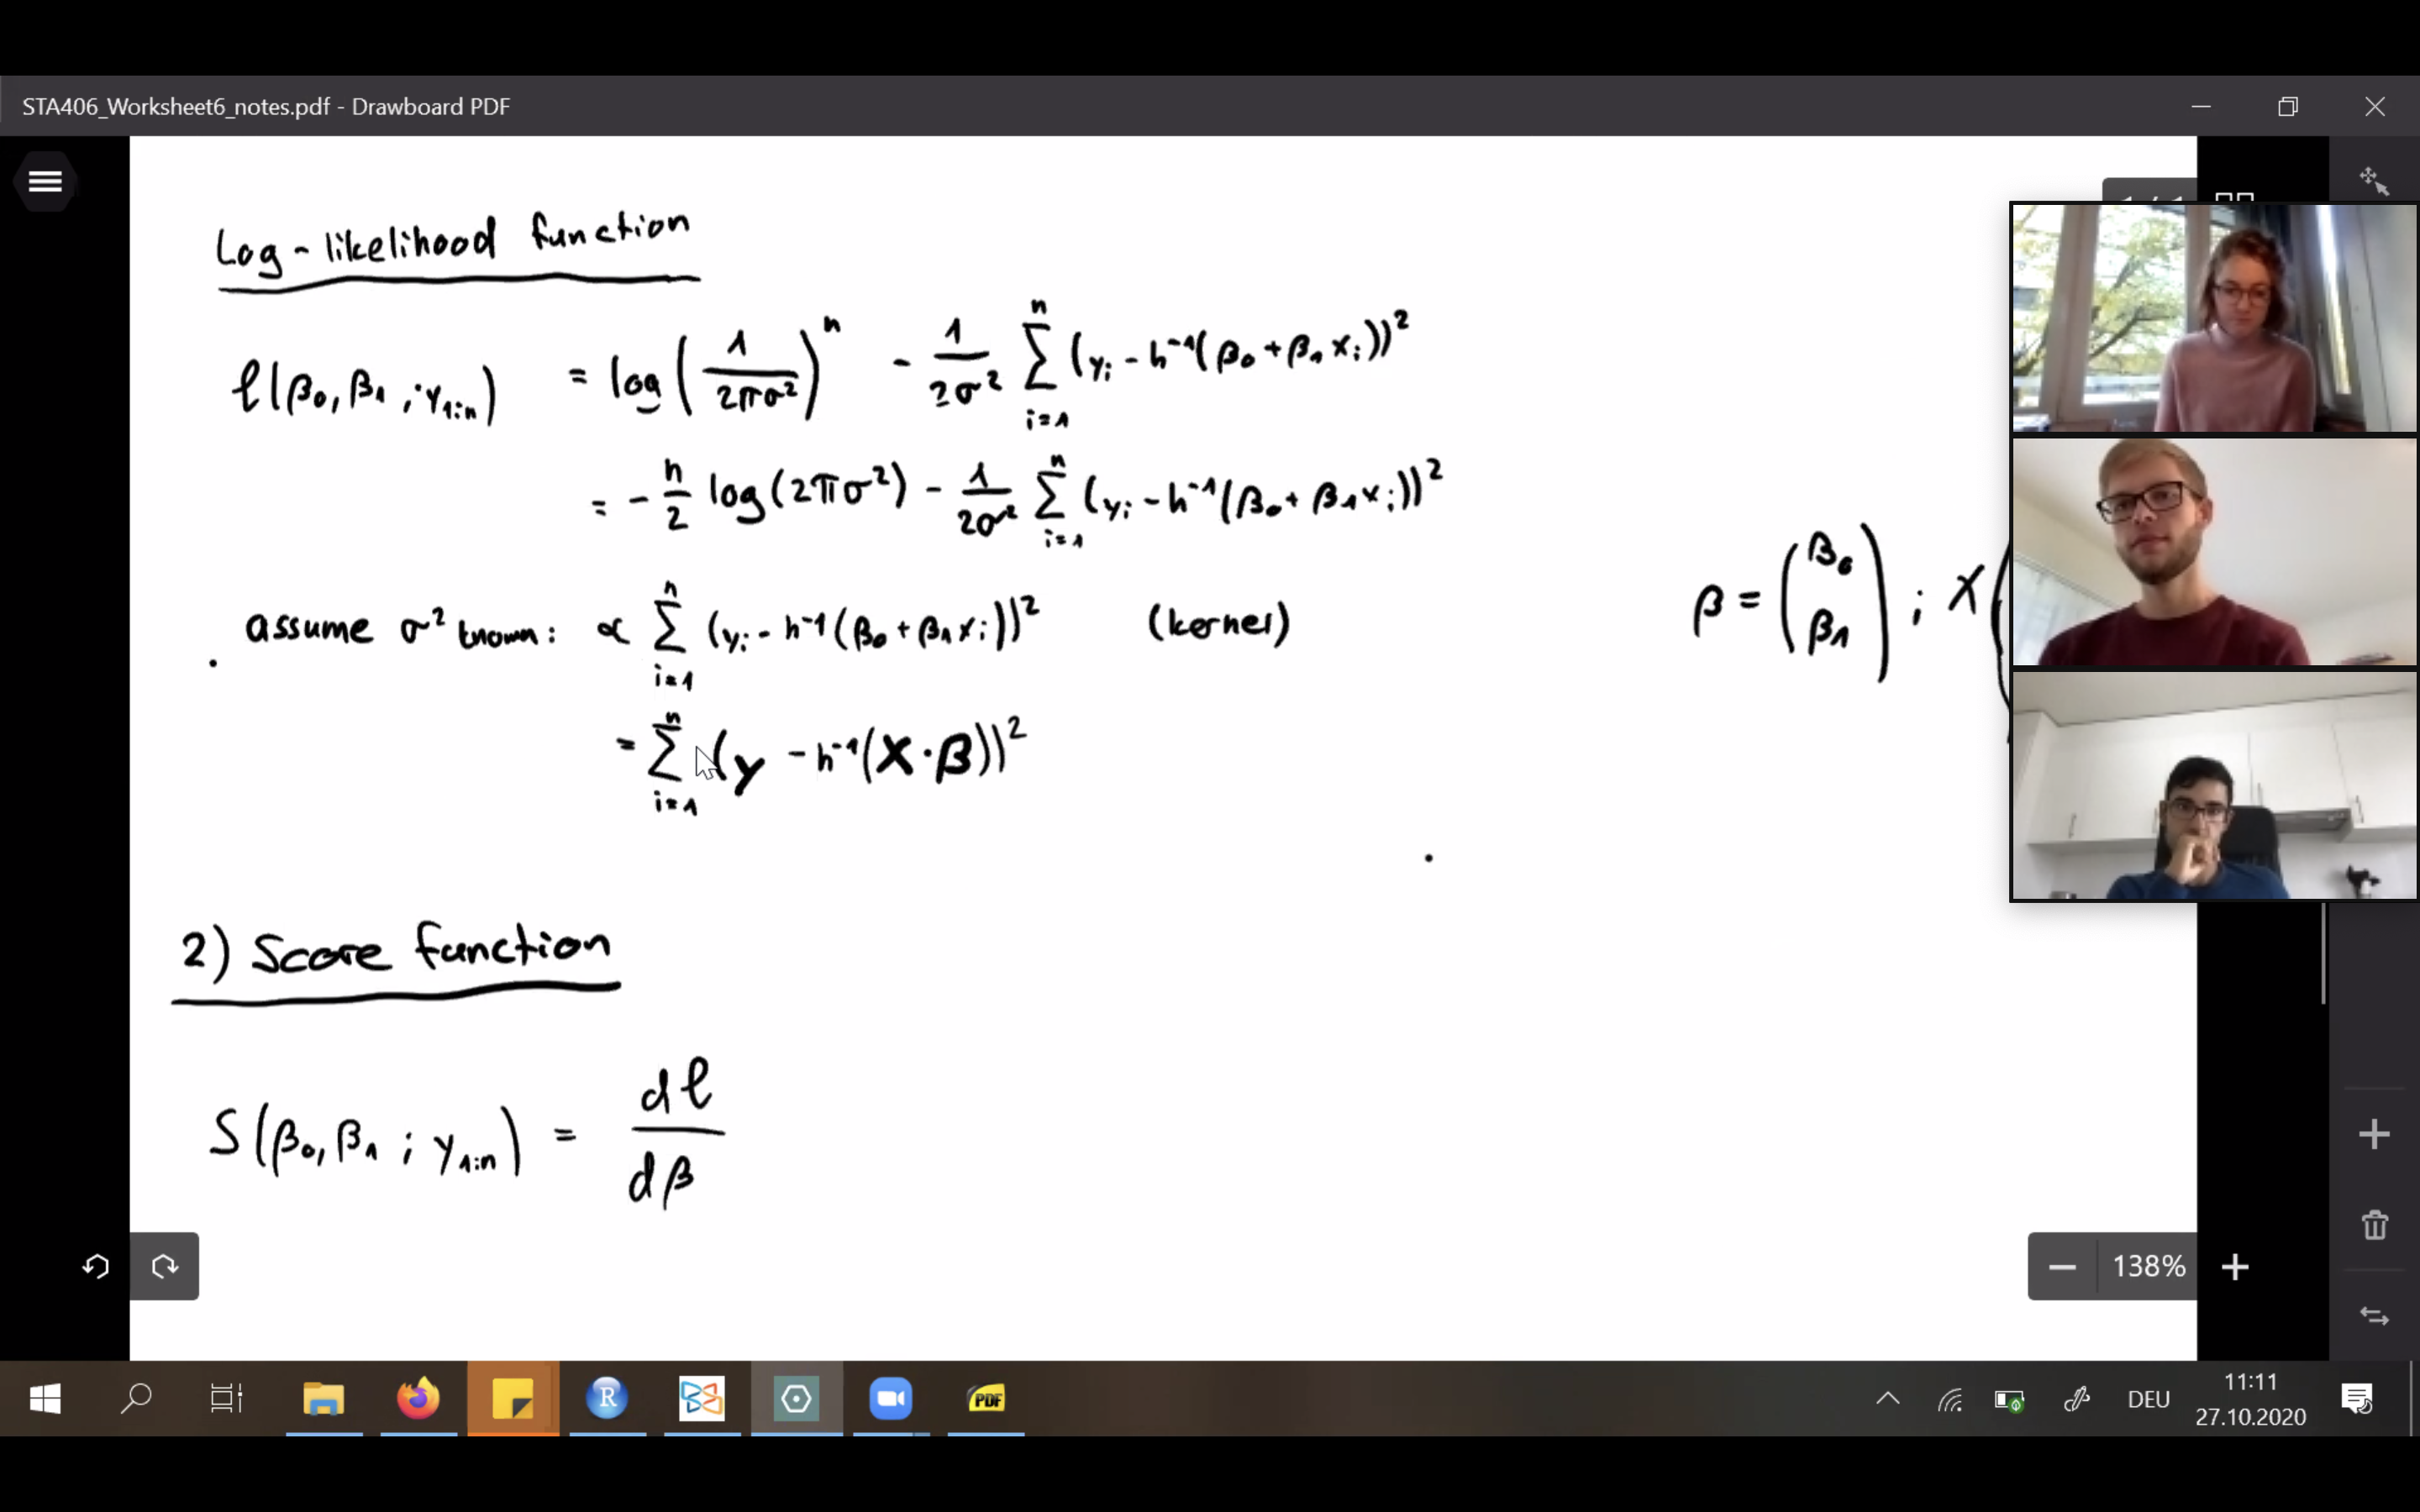 STA406_Worksheet6_notes.pdf - Drawboard PDF
Log-likelihood function
ℓ(β₀, β₁ ; y₁:ₙ) = log (1/2πσ²)ⁿ - 1/2σ² ∑ᵢ₌₁ⁿ (yᵢ - h⁻¹(β₀ + β₁xᵢ))²
= - n/2 log(2πσ²) - 1/2σ² ∑ᵢ₌₁ⁿ (yᵢ - h⁻¹(β₀ + β₁xᵢ))²
β = (β₀ β₁) ; X (
assume σ² known: ∝ ∑ᵢ₌₁ⁿ (yᵢ - h⁻¹(β₀ + β₁xᵢ))² (kernel)
= ∑ᵢ₌₁ⁿ (y - h⁻¹(X·β))²
2) Score function
S(β₀, β₁ ; y₁:ₙ) = dℓ/dβ
138%
R
PDF
DEU
11:11
27.10.2020